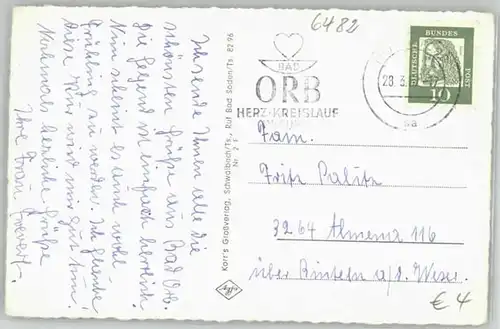 Tausend Ihnen alle die
schönsten Grüße aus Bad Orb.
Die Gegend ist einfach herrlich
Nun scheint es auch wohl
Frühling zu werden. Ich glaube
diese Kur wird mir gut tun!
Nochmals herzliche Grüße
Ihre Frau
Korr's Großverlag, Schwalbach/Ts., Ruf Bad Soden/Ts. 82 96
Nr.
Agfa
6482
BAD
ORB
HERZ-KREISLAUF
28.3.
DEUTSCHE
BUNDES
POST
10
Fam.
Fritz Palitz
3264 Almena 116
über Rinteln a/d. Weser.
€ 4